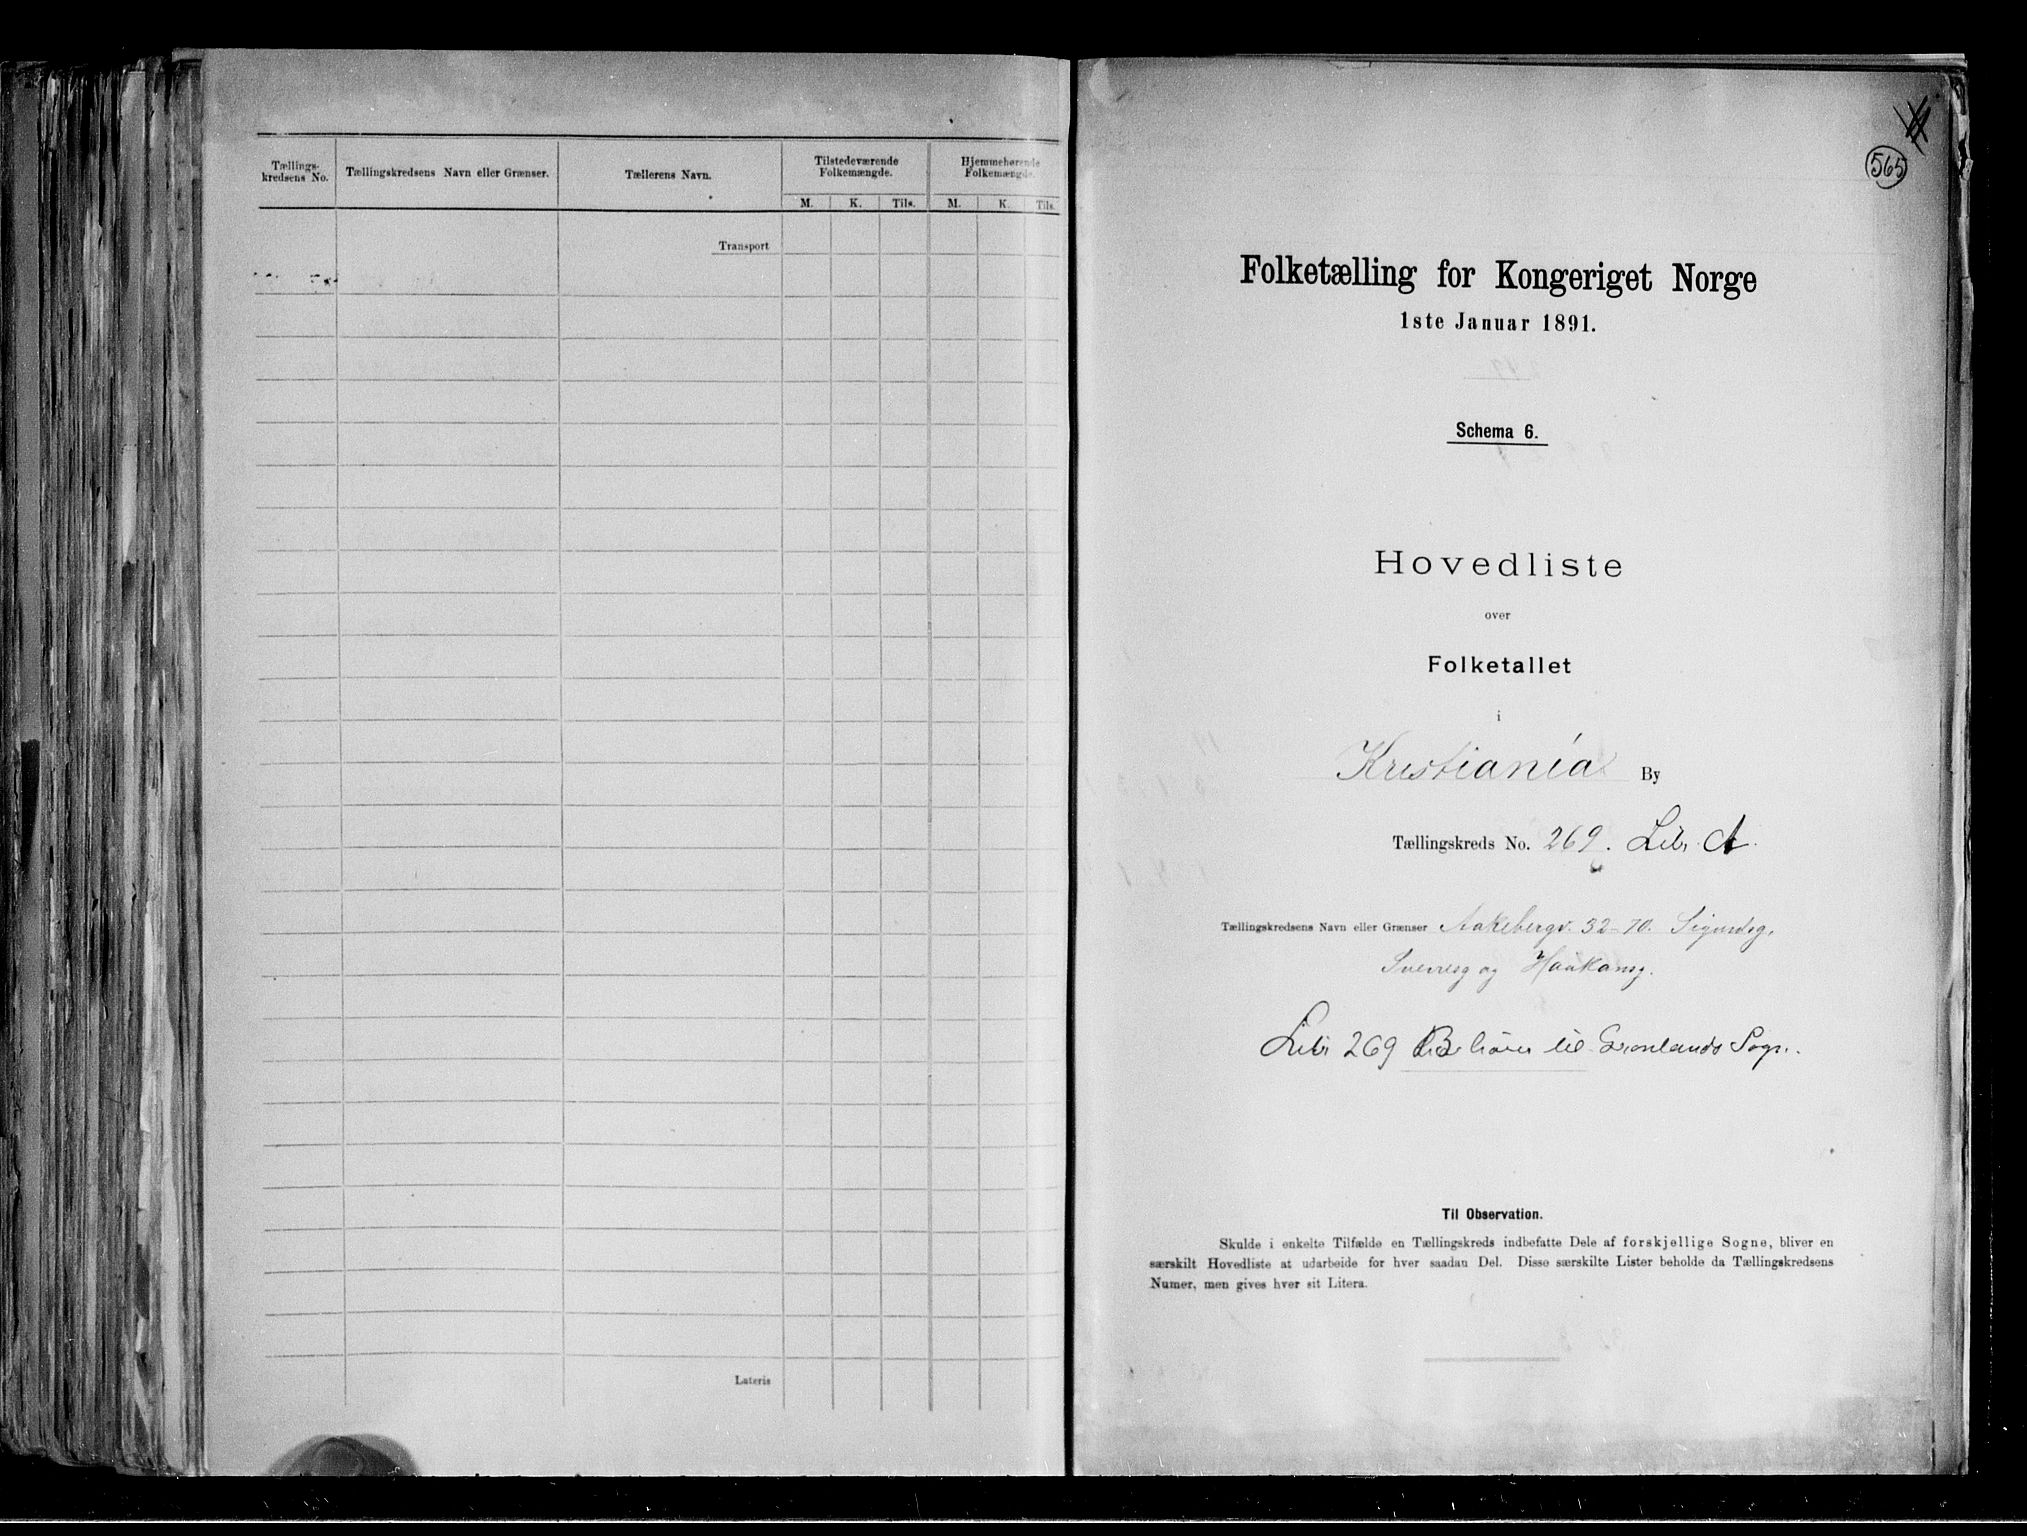 Tællings-
kredsens No.
Tællingskredsens Navn eller Grænser.
Tællerens Navn.
Tilstedeværende
Folkemængde.
Hjemmehørende
Folkemængde.
M. K. Tils. M. K. Tils.
Transport
Lateris
565
Folketælling for Kongeriget Norge
1ste Januar 1891.
Schema 6.
Hovedliste
over
Folketallet
i
Kristiania By
Tællingskreds No. 269. Litr. A.
Tællingskredsens Navn eller Grænser Aakebergv. 32-70. Sigurdsg,
Sverresg og Haakonsg.
Litr 269 B hører til Grønlands Sogn.
Til Observation.
Skulde i enkelte Tilfælde en Tællingskreds indbefatte Dele af forskjellige Sogne, bliver en
særskilt Hovedliste at udarbeide for hver saadan Del. Disse særskilte Lister beholde da Tællingskredsens
Numer, men gives hver sit Litera.